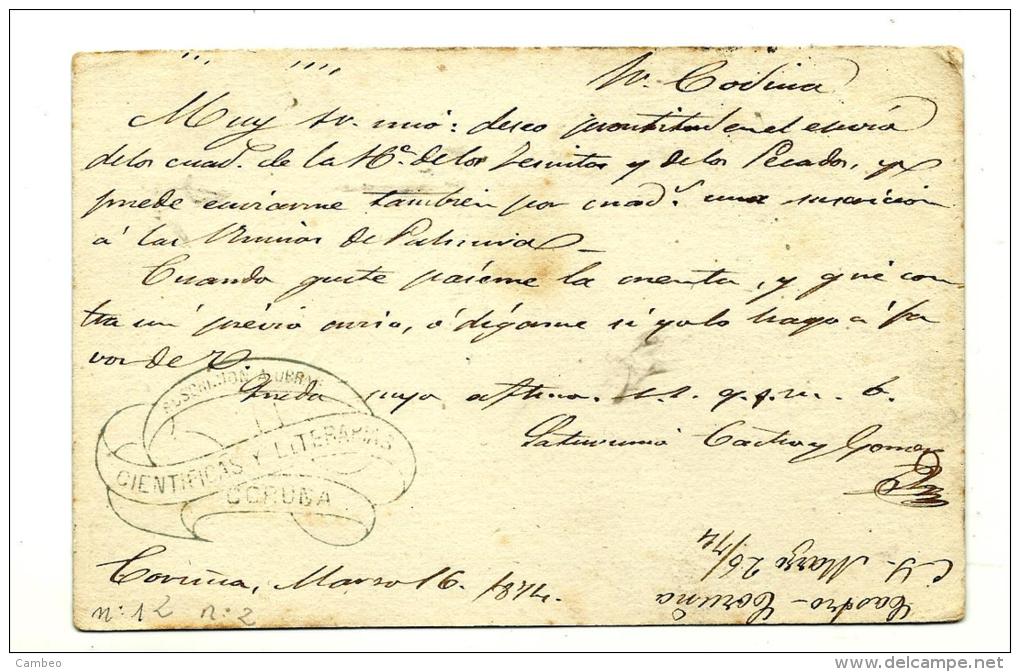 Sr. Codina
Muy Sr. mio: deseo prontitud en el envio
de los cuad. de la Hª de los Jesuitas y de los Pecados, y
puede enviarme tambien por cuad.s una suscricion
á las Ruinas de Palmira
Cuando guste páseme la cuenta, y gire con-
tra mi prévio aviso, ó digame si yo lo hago á fa
vor de V.
Queda suyo aftmo. s.s. q.s.m. b.
Saturnino Castro y
SUSCRICION A OBRAS
CIENTIFICAS Y LITERARIAS
CORUÑA
Coruña, Marzo 16. 1874.
n: 12 n: 2
Castro - Coruña
Marzo 26/74
Cambeo
delcampe.net